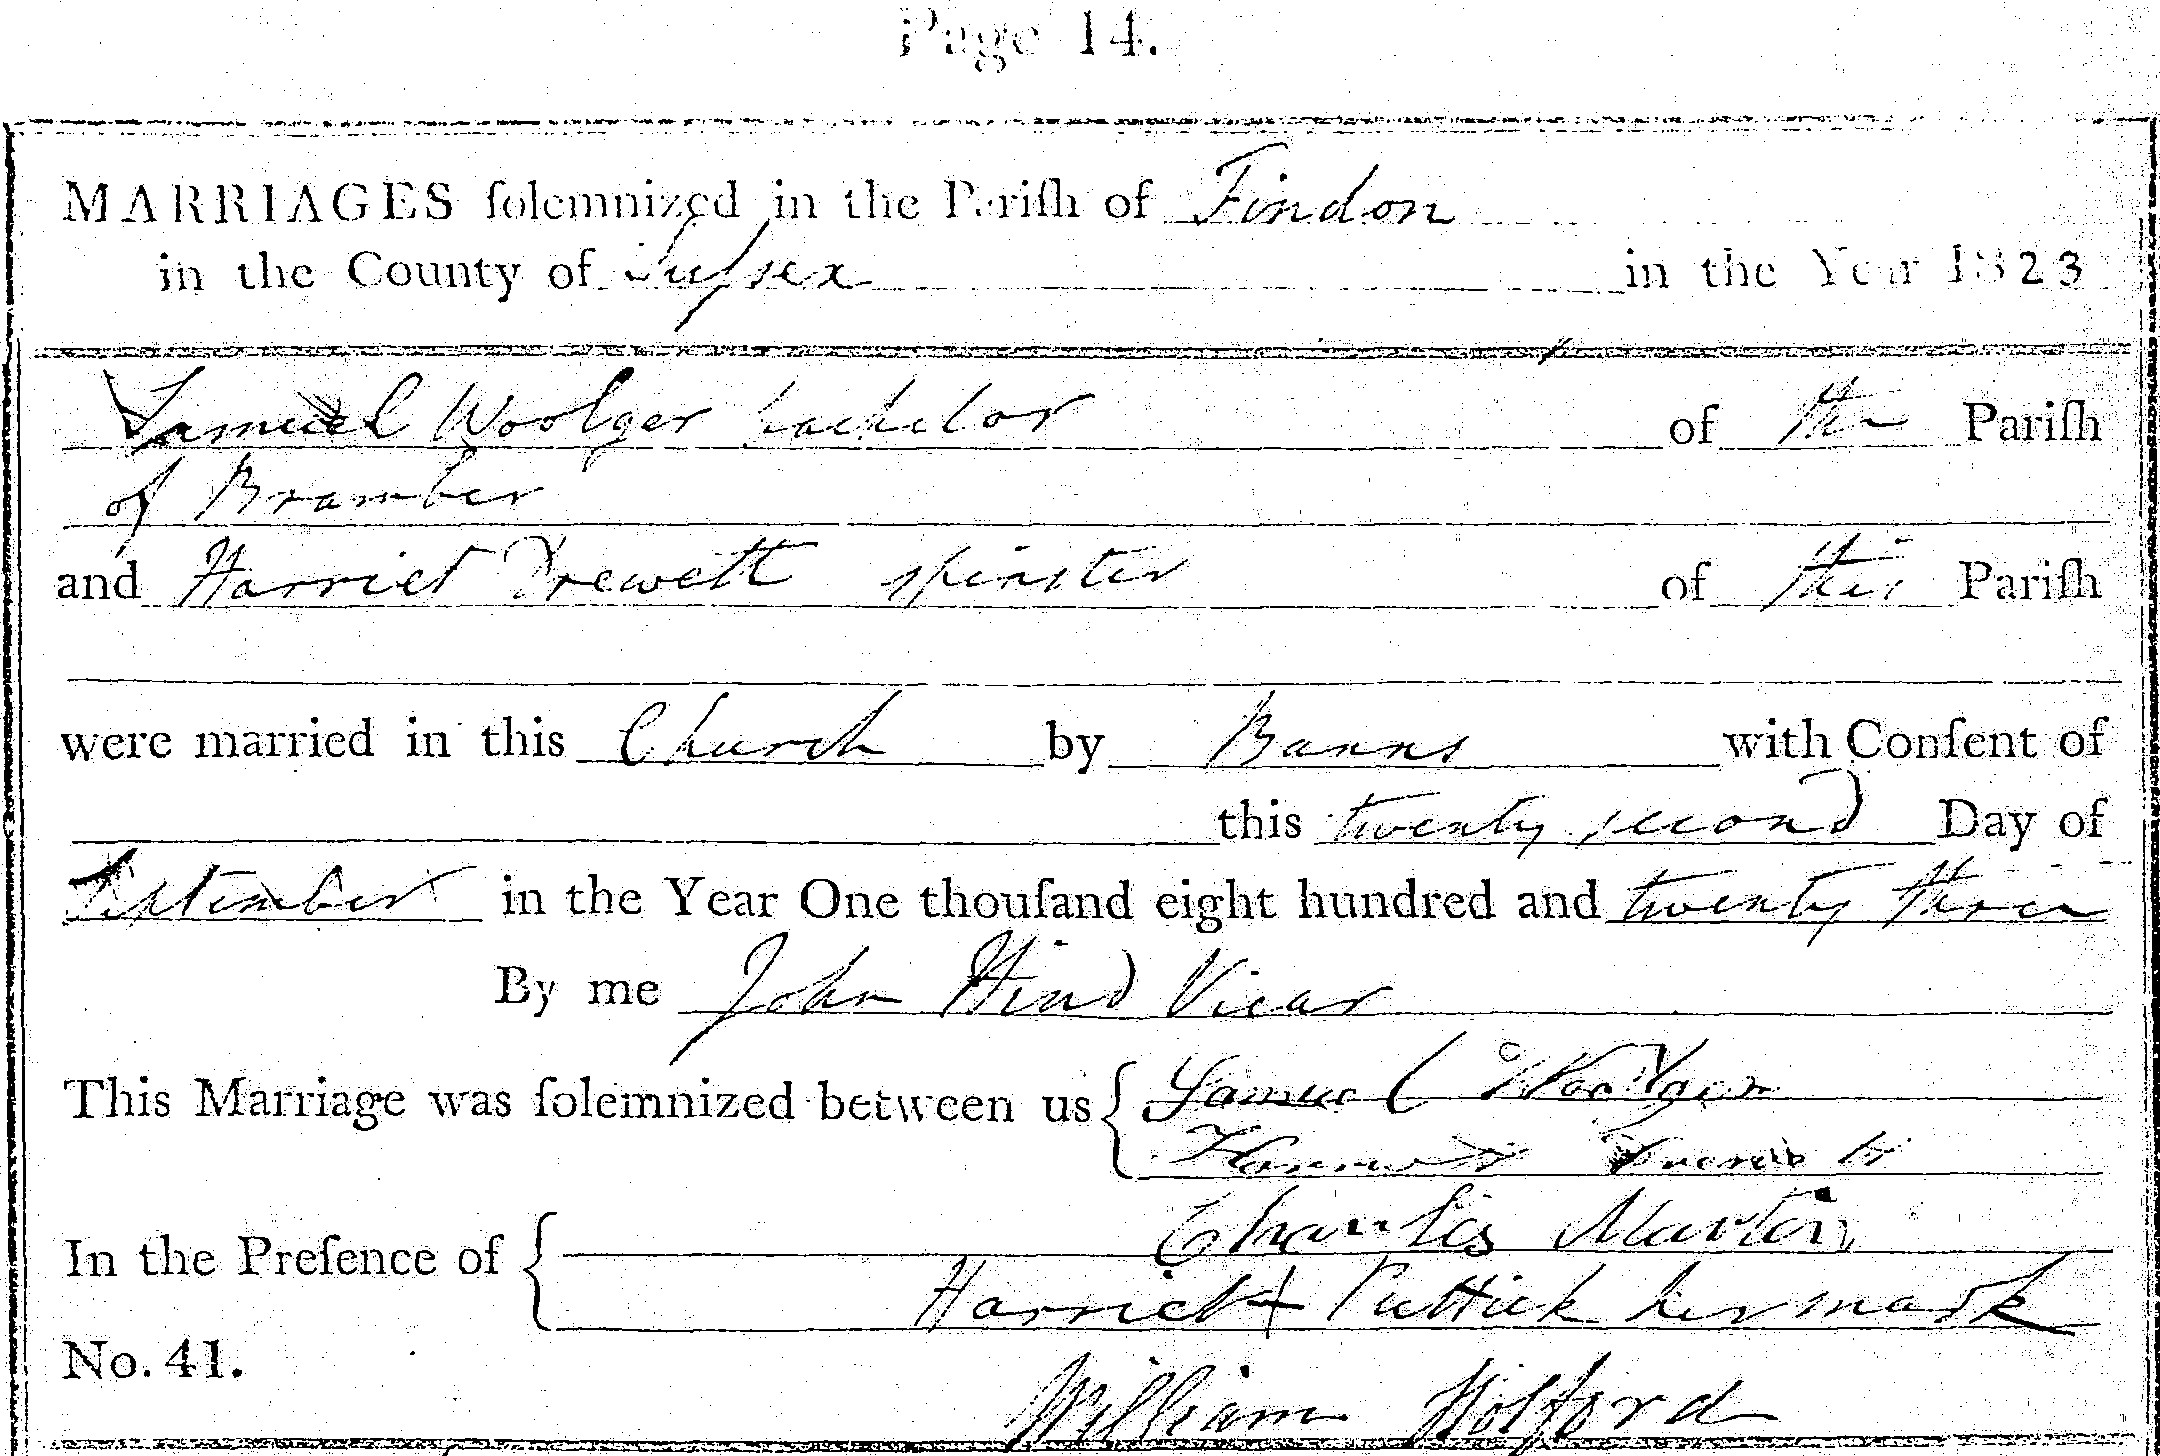 Page 14.
MARRIAGES ſolemnized in the Pariſh of Findon
in the County of Suſsex in the Year 1823
Samuel Woolger bachelor of the Pariſh
of Bramber
and Harriet Drewett spinster of this Pariſh
were married in this Church by Banns with Conſent of
this twenty second Day of
September in the Year One thouſand eight hundred and twenty three
By me John Hind Vicar
This Marriage was ſolemnized between us { Samuel Woolger
Harriet
In the Preſence of { Charles Martin
Harriet + Puttick her mark
No. 41.
William Holford